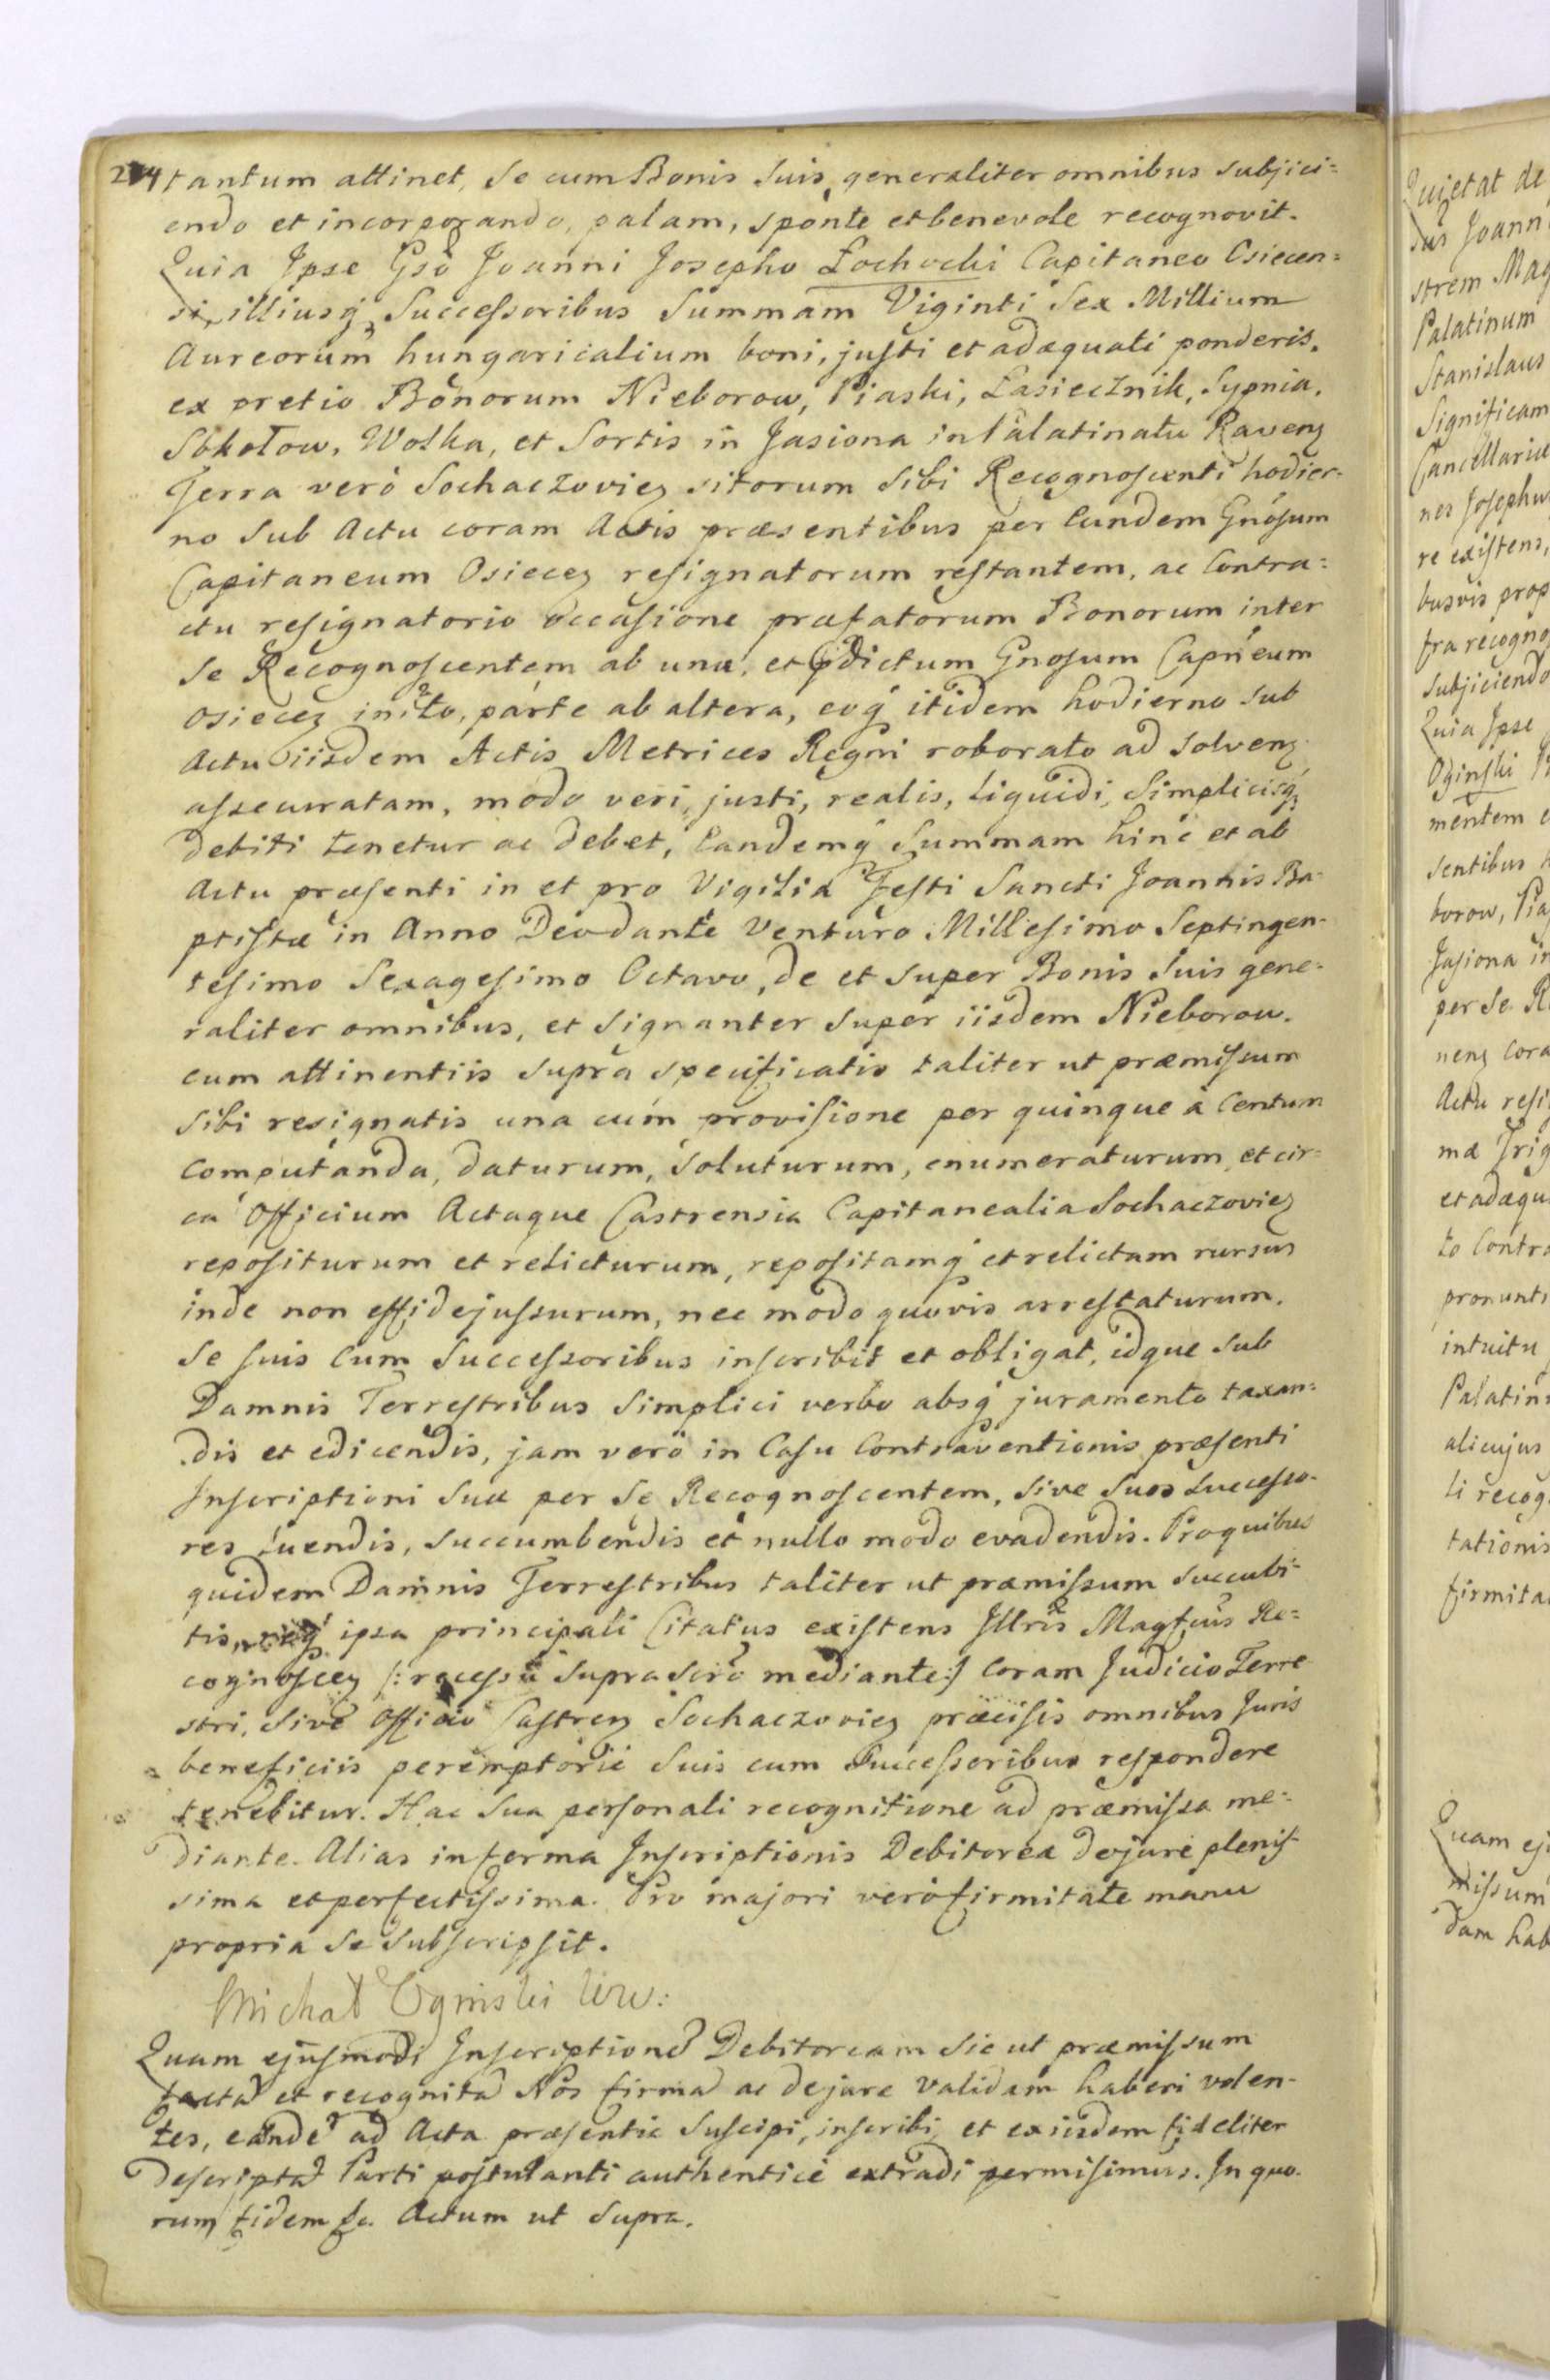 214 tantum attinet, se cum Bonis suis generaliter omnibus subjici=
endo et incorporando, palam, sponte et benevole recognovit.
Quia Ipse Gso Joanni Josepho Łochocki Capitaneo Osiecen=
si, illiusq Successoribus Summam Viginti Sex Millium
Aureorum hungaricalium boni, justi et adæquati ponderis,
ex pretio Bonorum Nieborow, Piaski, Łasiecznik, Sypnia,
Sokołow, Wolka, et Sortis in Jasiona in Palatinatu Raven
Terra verò Sochaczovien sitorum sibi Recognoscenti hodier=
no sub Actu coram Actis præsentibus per Eundem Gnosum
Capitaneum Osiecen resignatorum restantem, ac Contra=
ctu resignatorio occasione præfatorum Bonorum inter
se Recognoscentem ab una, et pdictum Gnosum Capneum
Osiecen inito, parte ab altera, eoq itidem hodierno sub
Actu iisdem Actis Metrices Regni roborato ad solven
assecuratam, modo veri, justi, realis, liquidi, Simplicisq
debiti tenetur ac debet, Eandemq Summam hinc et ab
Actu præsenti in et pro Vigilia Festi Sancti Joannis Ba=
ptistæ in Anno Deo dante Venturo Millesimo Septingen=
tesimo Sexagesimo Octavo, de et super Bonis suis gene=
raliter omnibus, et signanter super iisdem Nieborow.
cum attinentiis suprà specificatis taliter ut præmissum
sibi resignatis una cum provisione per quinque à Centum
computanda, daturum, soluturum, enumeraturum, et cir=
ca Officium Actaque Castrensia Capitanealia Sochaczovien
repositurum et relicturum, repositamq et relictam rursus
inde non effidejussurum, nec modo quovis arrestaturum,
se suis cum Successoribus inscribit et obligat, idque sub
Damnis Terrestribus simplici verbo absq juramento taxan=
dis et edicendis, jam verò in Casu Contraventionis præsenti
Inscriptioni suæ per se Recognoscentem, sive suos successo=
res luendis, succumbendis et nullo modo evadendis. Pro quibus
quidem Damnis Terrestribus taliter ut præmissum succubi=
tis, ipsa principali Citatus existens Illris Magfcus Re=
cognoscen /: recessu suprascro mediante :/ coram Judicio Terre
stri, sive Officio Castren Sochaczovien præcisis omnibus Juris
beneficiis peremptoriè suis cum Successoribus respondere
tenebitur. Hac sua personali recognitione ad præmissa me=
diante. Alias in forma Inscriptionis Debitorea de jure plenis
sima et perfectissima. Pro majori verò firmitate manu
propria se subscripsit.
Michał Oginski WW:
Quam ejusmodi Inscriptione Debitoream sic ut præmissum
facta et recognita Nos firma ac de jure validam haberi volen=
tes, eande ad Acta præsentia suscipi, inscribi, et ex iisdem fideliter
descripta Parti postulanti authenticè extradi permisimus. In quo=
rum fidem &c. Actum ut supra.
Quietat de
sus Joann
strem Mag
Palatinum
Stanislaus
Significam
Cancellariæ
nes Josephus
re existens,
busvis prop
fra recogno
subjiciendo
Quia Ipse
Oginski
mentem
sentibus
borow, Pia
Jasiona in
per se R
nen cora
Actu resi
ma Trig
et adæqu
to Contra
pronunti
intuitu
Palatin
alicujus
li recog
tationis
firmita
Quam ej
missum
dam hab